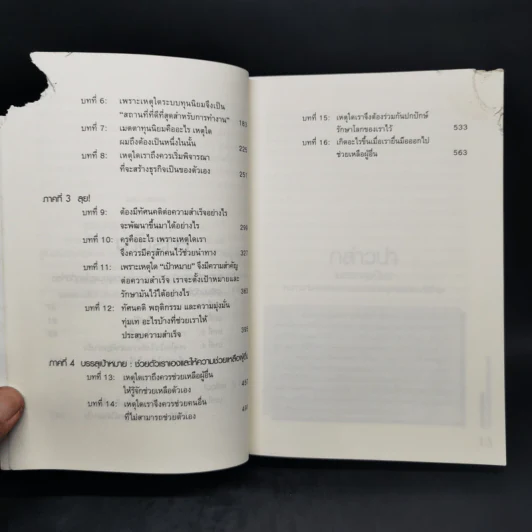 บทที่ 6: เพราะเหตุใดระบบทุนนิยมจึงเป็น
"สถานที่ที่ดีที่สุดสำหรับการทำงาน" 183
บทที่ 7: เมตตาทุนนิยมคืออะไร เหตุใด
ผมถึงต้องเป็นหนึ่งในนั้น 225
บทที่ 8: เหตุใดเราถึงควรเริ่มพิจารณา
ที่จะสร้างธุรกิจเป็นของตัวเอง 251
ภาคที่ 3 ลุย!
บทที่ 9: ต้องมีทัศนคติต่อความสำเร็จอย่างไร
จะพัฒนาขึ้นมาได้อย่างไร
บทที่ 10: ครูคืออะไร เพราะเหตุใดเรา
จึงควรมีครูสักคนไว้ช่วยนำทาง
บทที่ 11: เพราะเหตุใด "เป้าหมาย" จึงมีความสำคัญ
ต่อความสำเร็จ เราจะตั้งเป้าหมายและ
รักษามันไว้ได้อย่างไร
บทที่ 12: ทัศนคติ พฤติกรรม และความมุ่งมั่น
ทุ่มเท อะไรบ้างที่ช่วยเราให้
ประสบความสำเร็จ
ภาคที่ 4 บรรลุเป้าหมาย : ช่วยตัวเราเองและให้ความช่วยเหลือผู้อื่น
บทที่ 13: เหตุใดเราถึงควรช่วยเหลือผู้อื่น
ให้รู้จักช่วยเหลือตัวเอง
บทที่ 14: เหตุใดเราจึงควรช่วยคนอื่น
ที่ไม่สามารถช่วยตัวเอง
บทที่ 15: เหตุใดเราจึงต้องร่วมกันปกปักษ์
รักษาโลกของเราไว้ 533
บทที่ 16: เกิดอะไรขึ้นเมื่อเรายื่นมือออกไป
ช่วยเหลือผู้อื่น 563